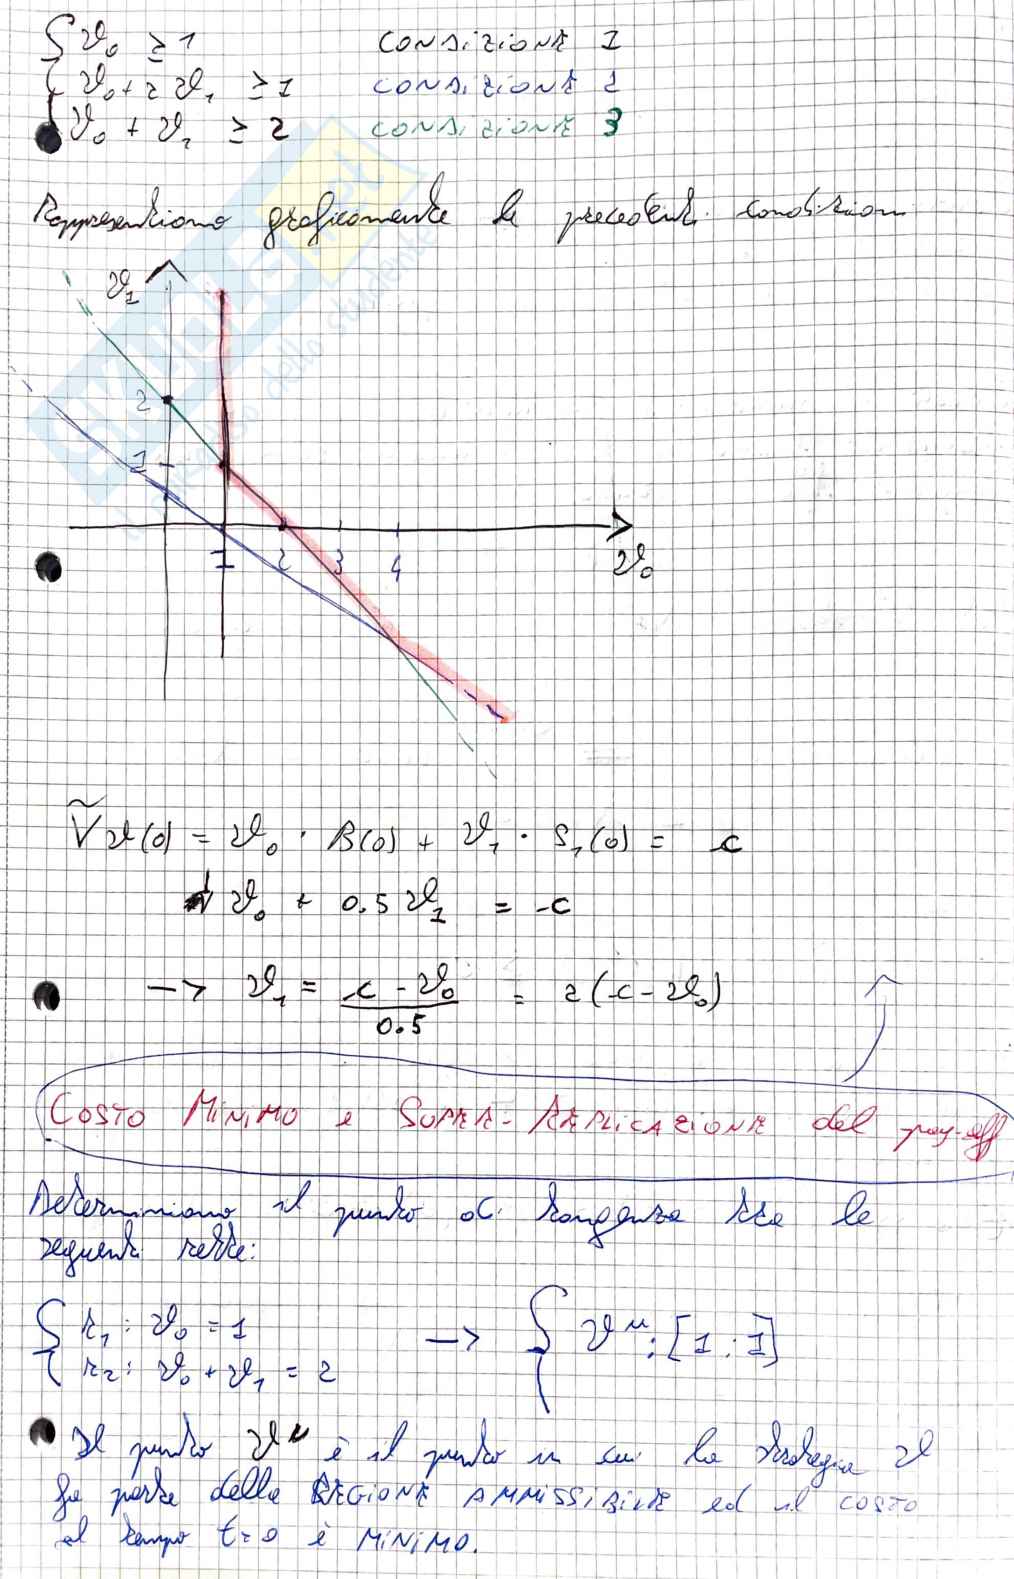 ϑ₀ ≥ 1 CONDIZIONE 1
ϑ₀ + 2 ϑ₁ ≥ 1 CONDIZIONE 2
ϑ₀ + ϑ₁ ≥ 2 CONDIZIONE 3
Rappresentiamo graficamente le precedenti condizioni
ϑ₁
2
1
1 2 3 4
ϑ₀
Ṽϑ(0) = ϑ₀ · B(0) + ϑ₁ · S₁(0) = c
ϑ₀ + 0.5 ϑ₁ = c
→ ϑ₁ = (c - ϑ₀)/0.5 = 2(c - ϑ₀)
COSTO MINIMO e SUPER-REPLICAZIONE del pay-off
Determiniamo il punto di tangenza tra le
seguenti rette:
r₁: ϑ₀ = 1 → ϑᴺ: [1 ; 1]
r₂: ϑ₀ + ϑ₁ = 2
Il punto ϑᴺ è il punto in cui la strategia ϑ
fa parte della REGIONE AMMISSIBILE ed il COSTO
al tempo t=0 è MINIMO.